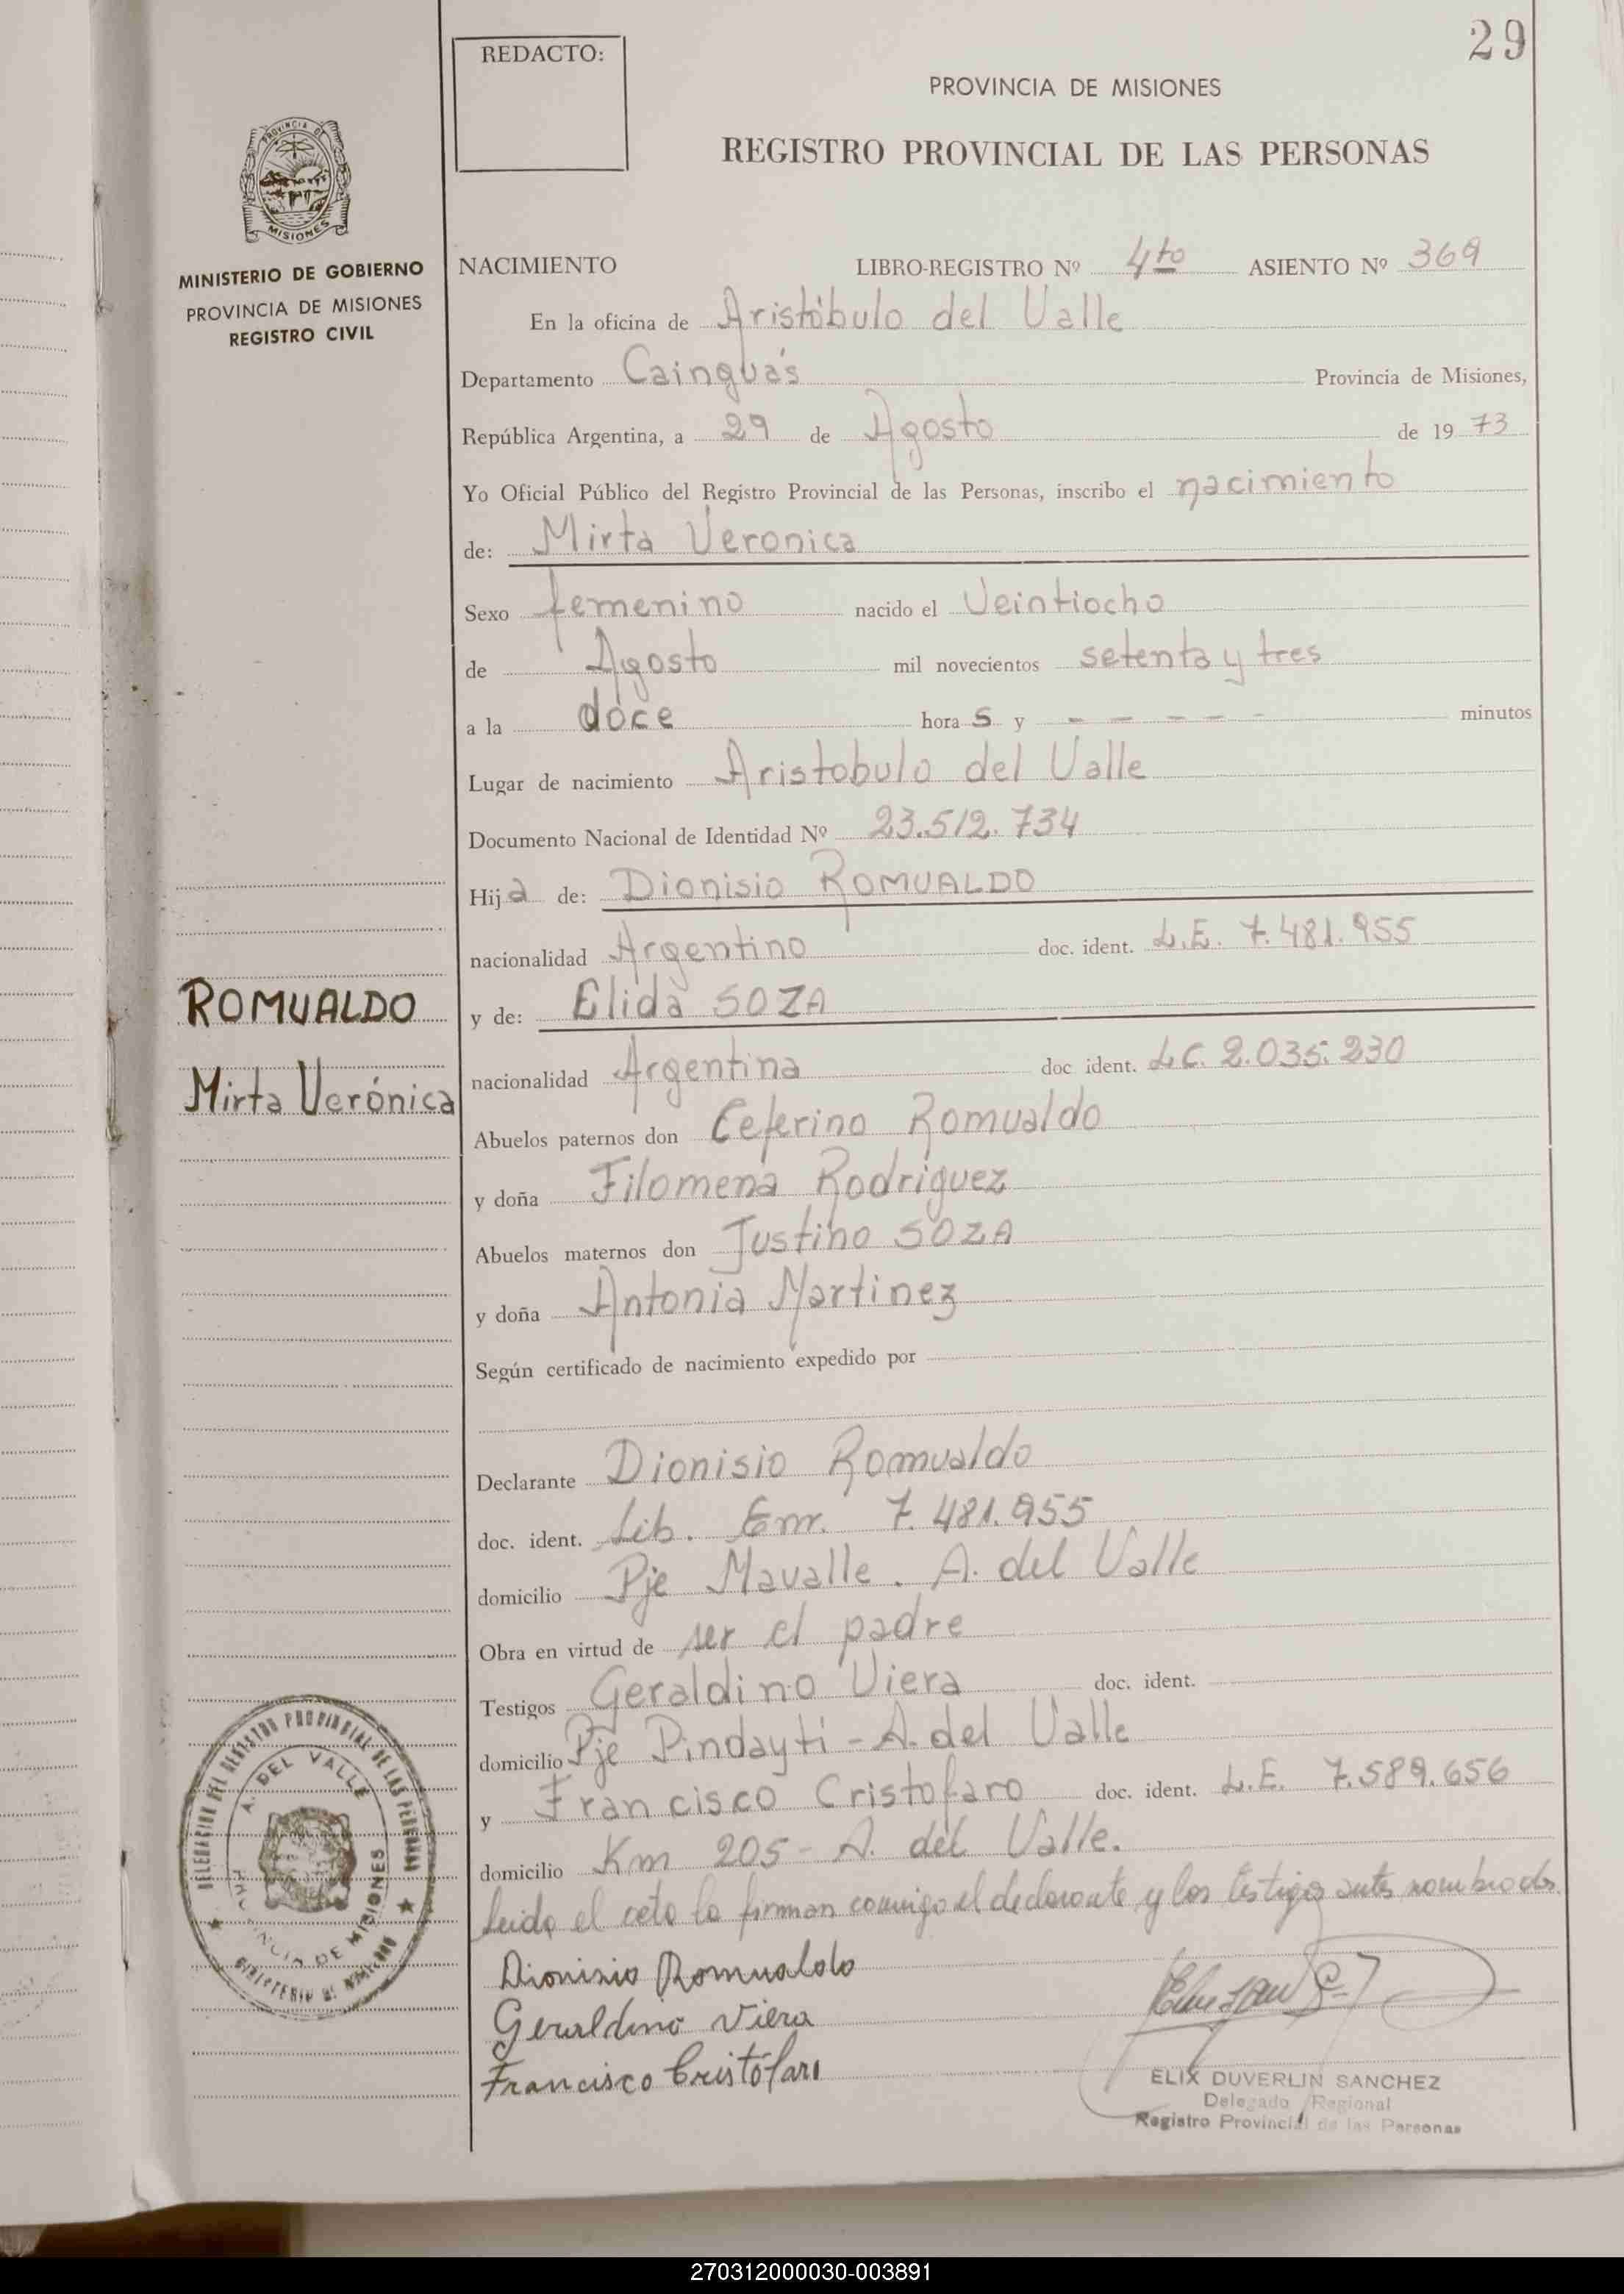 29
REDACTO:
PROVINCIA DE MISIONES
REGISTRO PROVINCIAL DE LAS PERSONAS
PROVINCIA DE
MISIONES
MINISTERIO DE GOBIERNO
PROVINCIA DE MISIONES
REGISTRO CIVIL
NACIMIENTO LIBRO-REGISTRO Nº 4to ASIENTO Nº 369
En la oficina de Aristóbulo del Valle
Departamento Cainguás Provincia de Misiones,
República Argentina, a 29 de Agosto de 1973
Yo Oficial Público del Registro Provincial de las Personas, inscribo el nacimiento
de: Mirta Veronica
Sexo femenino nacido el Veintiocho
de Agosto mil novecientos setenta y tres
a la doce hora s y - - - - - minutos
Lugar de nacimiento Aristobulo del Valle
Documento Nacional de Identidad Nº 23.512.734
Hija de: Dionisio ROMUALDO
nacionalidad Argentino doc. ident. L.E. 7.481.955
y de: Elida SOZA
nacionalidad Argentina doc ident. L.C. 2.035.230
ROMUALDO
Mirta Verónica
Abuelos paternos don Ceferino Romualdo
y doña Filomena Rodriguez
Abuelos maternos don Justino SOZA
y doña Antonia Martinez
Según certificado de nacimiento expedido por
Declarante Dionisio Romualdo
doc. ident. Lib. Enr. 7.481.955
domicilio Pje Mavalle. A. del Valle
Obra en virtud de ser el padre
Testigos Geraldino Viera doc. ident.
domicilio Pje Pindayti - A. del Valle
y Francisco Cristofaro doc. ident. L.E. 7.589.656
domicilio Km 205 - A. del Valle.
Leido el acta la firman conmigo el declarante y los testigos antes nombrados
Dionisio Romualdo
Geraldino Viera
Francisco Cristófaro
DELEGACION DEL REGISTRO PROVINCIAL DE LAS PERSONAS
A. DEL VALLE
PROVINCIA DE MISIONES
MINISTERIO DE GOBIERNO
ELIX DUVERLIN SANCHEZ
Delegado Regional
Registro Provincial de las Personas
270312000030-003891